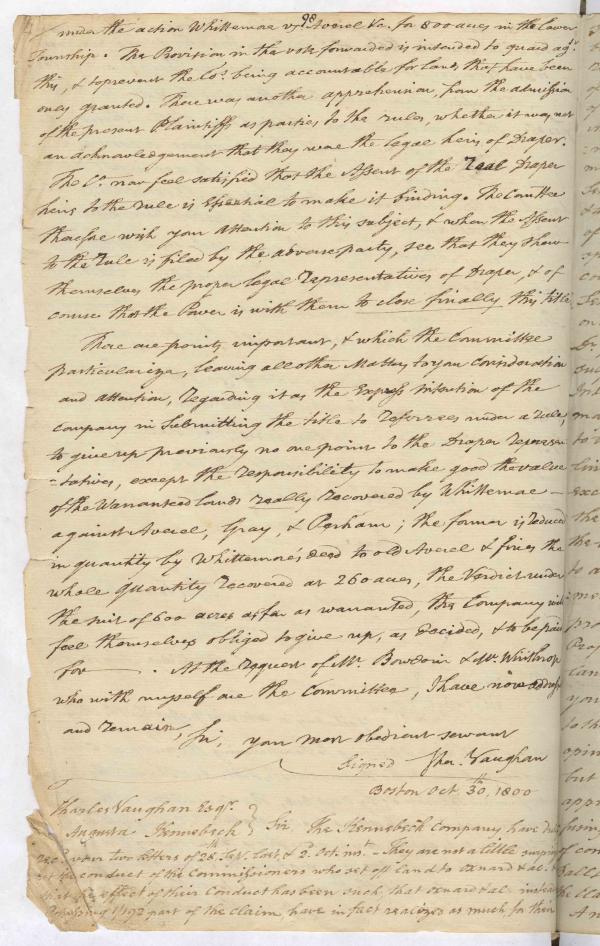 98
under the action Whittemore vs Averel &c. for 800 acres in the lower
Township. The Provision in the vote forwarded is intended to guard agt
this, & to prevent the Co's being accountable for Land, that have been
once granted. There was another apprehension, from the admission
of the present Plaintiffs as parties to the rules, whether it was not
an acknowledgement that they were the legal heirs of Draper.
The Co. now feel satisfied that the Assent of the real Draper
heirs to the rule is essential to make it binding. The Comttee
therefore wish your attention to this subject, & when the Assent
to the rule is filed by the adverse party, see that they show
themselves the proper legal representatives of Draper, & of
course that the Power is with them to close finally this title.
There are points important, & which the Committee
particularize, leaving all other Matters to your consideration
and attention, regarding it as the Express intention of the
company in submitting the title to referrees under a rule,
to give up previously no one point to the Draper represen
=tatives, except the responsibility to make good the value
of the Warranted Lands really recovered by Whittemore -
against Averel, Gray, & Parham; the former is reduced
in quantity by Whittemore's deed to old Averel & fixes the
whole quantity recovered at 260 acres, the Verdict under
the suit of 600 acres as far as warranted, the Company will
feel themselves obliged to give up, as decided, & to be paid
for ——. At the request of Mr. Bowdoin & Mr. Winthrop
who with myself are the Committee, I have now
and remain, Sir, your most obedient servant
Signed Chas. Vaughan
Boston Oct. 30th, 1800
Charles Vaughan Esqr.
Augusta Kennebeck } Sir, The Kennebeck Company have
your two letters of 28th Sep. last, & 2. Oct. inst. - They are not a little
at the conduct of the Commissioners who set off land to Oxnard & al. -
that the effect of their Conduct has been such, that Oxnard & al. instead
part of the claim, have in fact realized as much for their